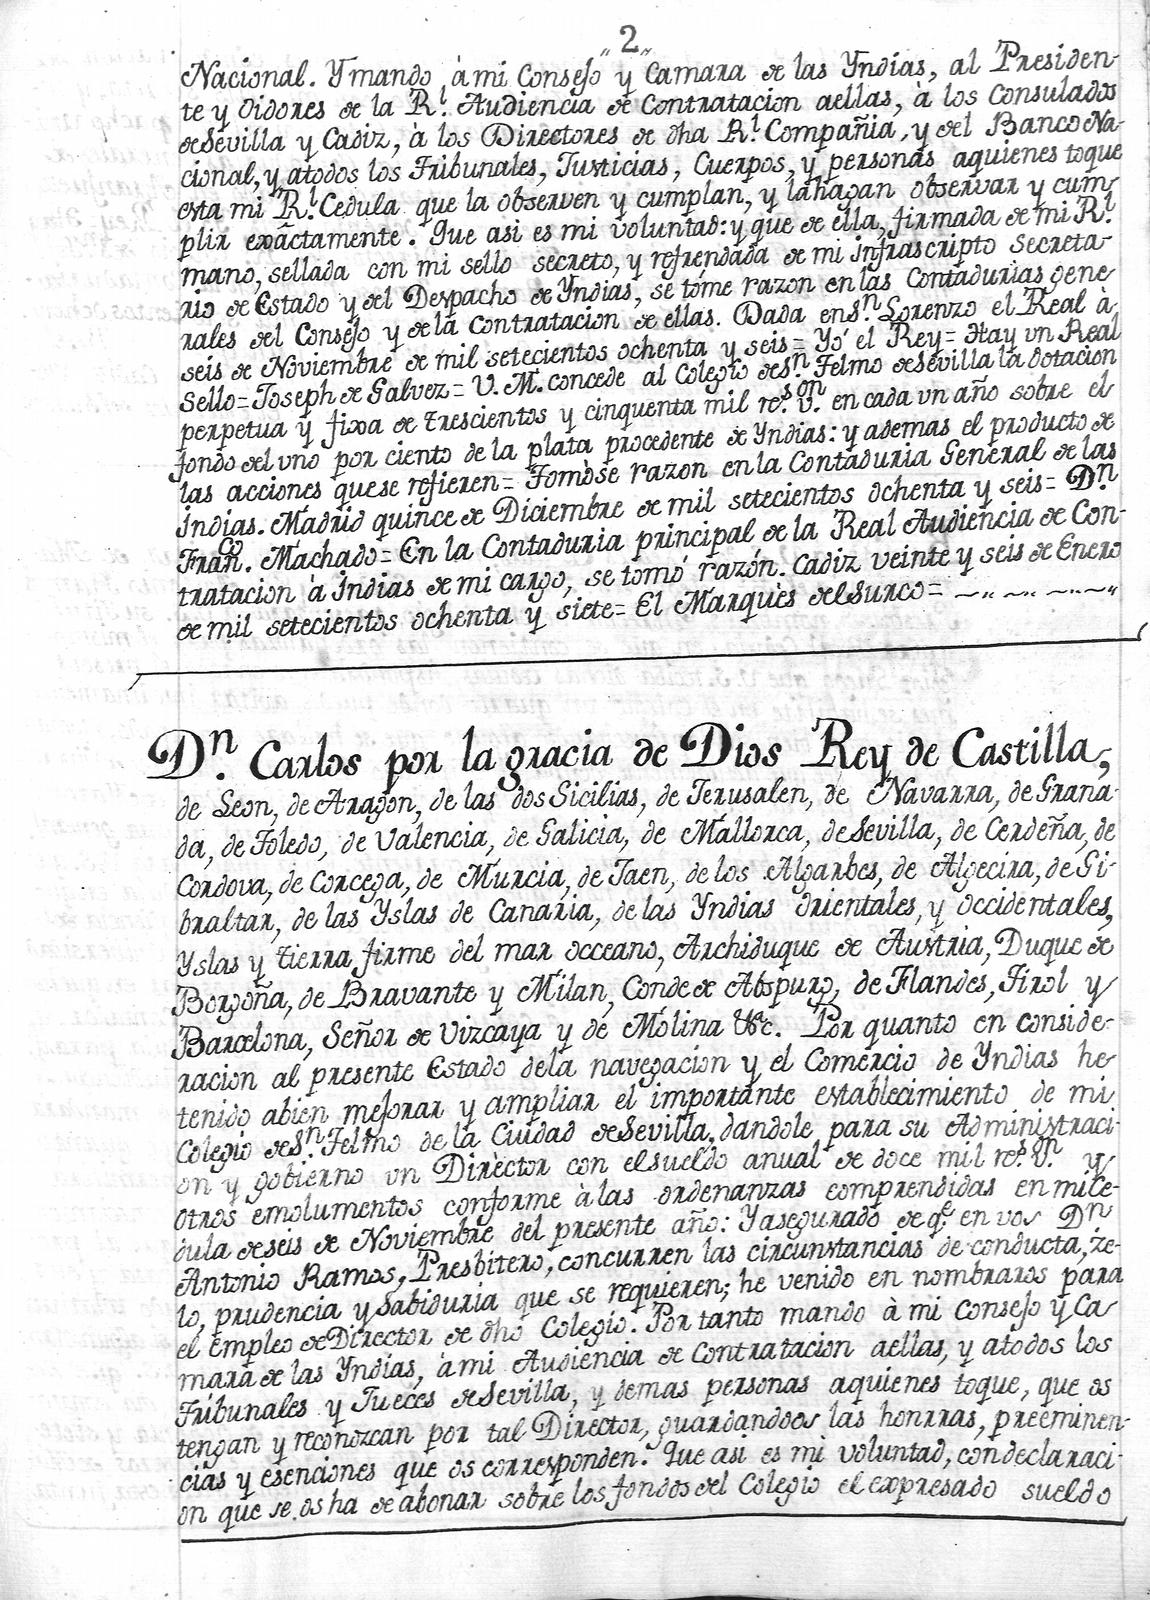 „2„
Nacional. Y mando à mi Consejo y Camara de las Yndias, al Presiden-
te y Oidores de la Rl. Audiencia de Contratacion aellas, à los Consulados
de Sevilla y Cadiz, à los Directores de dha Rl. Compañia, y del Banco Na-
cional, y atodos los Tribunales, Justicias, Cuerpos, y personas aquienes toque
esta mi Rl. Cedula que la observen y cumplan, y lahagan observar y cum-
plir exâctamente. Que asi es mi voluntad: y que de ella, firmada de mi Rl.
mano, sellada con mi sello secreto, y refrendada de mi infrascripto Secreta-
rio de Estado y del Despacho de Yndias, se tóme razon en las Contadurias gene-
rales del Consejo y de la Contratacion de ellas. Dada en Sn. Lorenzo el Real à
seis de Noviembre de mil setecientos ochenta y seis= Yó el Rey= Hay un Real
Sello= Joseph de Galvez= V. M. concede al Colegio de Sn. Telmo de Sevilla la dotacion
perpetua y fixa de trescientos y cinquenta mil rs. von. en cada un año sobre el
fondo del uno por ciento de la plata procedente de Yndias: y ademas el producto de
las acciones quese refieren= Tomòse razon en la Contaduria General de las
Indias. Madrid quince de Diciembre de mil setecientos ochenta y seis= Dn.
Franco. Machado= En la Contaduria principal de la Real Audiencia de Con-
tratacion à Indias de mi cargo, se tomó razón. Cadiz veinte y seis de Enero
de mil setecientos ochenta y siete= El Marques del Surco=
Dn. Carlos por la gracia de Dios Rey de Castilla,
de Leon, de Aragon, de las dos Sicilias, de Jerusalen, de Navarra, de Grana-
da, de Toledo, de Valencia, de Galicia, de Mallorca, de Sevilla, de Cerdeña, de
Cordova, de Corcega, de Murcia, de Jaen, de los Algarbes, de Algecira, de Gi-
braltar, de las Yslas de Canaria, de las Yndias orientales, y occidentales,
Yslas y tierra firme del mar occeano, Archiduque de Austria, Duque de
Borgoña, de Bravante y Milan, Conde de Abspurg, de Flandes, Tirol y
Barcelona, Señor de Vizcaya y de Molina &c. Por quanto en conside-
racion al presente Estado dela navegacion y el Comercio de Yndias he
tenido abien mejorar y ampliar el importante establecimiento de mi
Colegio de Sn. Telmo de la Ciudad de Sevilla, dandole para su Administraci-
on y gobierno un Director con el sueldo anual de doce mil rs. von. y
otros emolumentos conforme à las ordenanzas comprendidas en mi Ce-
dula de seis de Noviembre del presente año: Y asegurado de qe. en vos Dn.
Antonio Ramos, Presbitero, concurren las circunstancias de conducta, ze-
lo, prudencia y Sabiduria que se requieren; he venido en nombraros para
el empleo de Director de dho Colegio. Por tanto mando à mi Consejo y Ca-
mara de las Yndias, à mi Audiencia de Contratacion aellas, y atodos los
Tribunales y Jueces de Sevilla, y demas personas aquienes toque, que os
tengan y reconozcan por tal Director, guardandoos las honrras, preeminen-
cias y esenciones que os corresponden. Que asi es mi voluntad, con declaraci-
on que se os ha de abonar sobre los fondos del Colegio el expresado sueldo